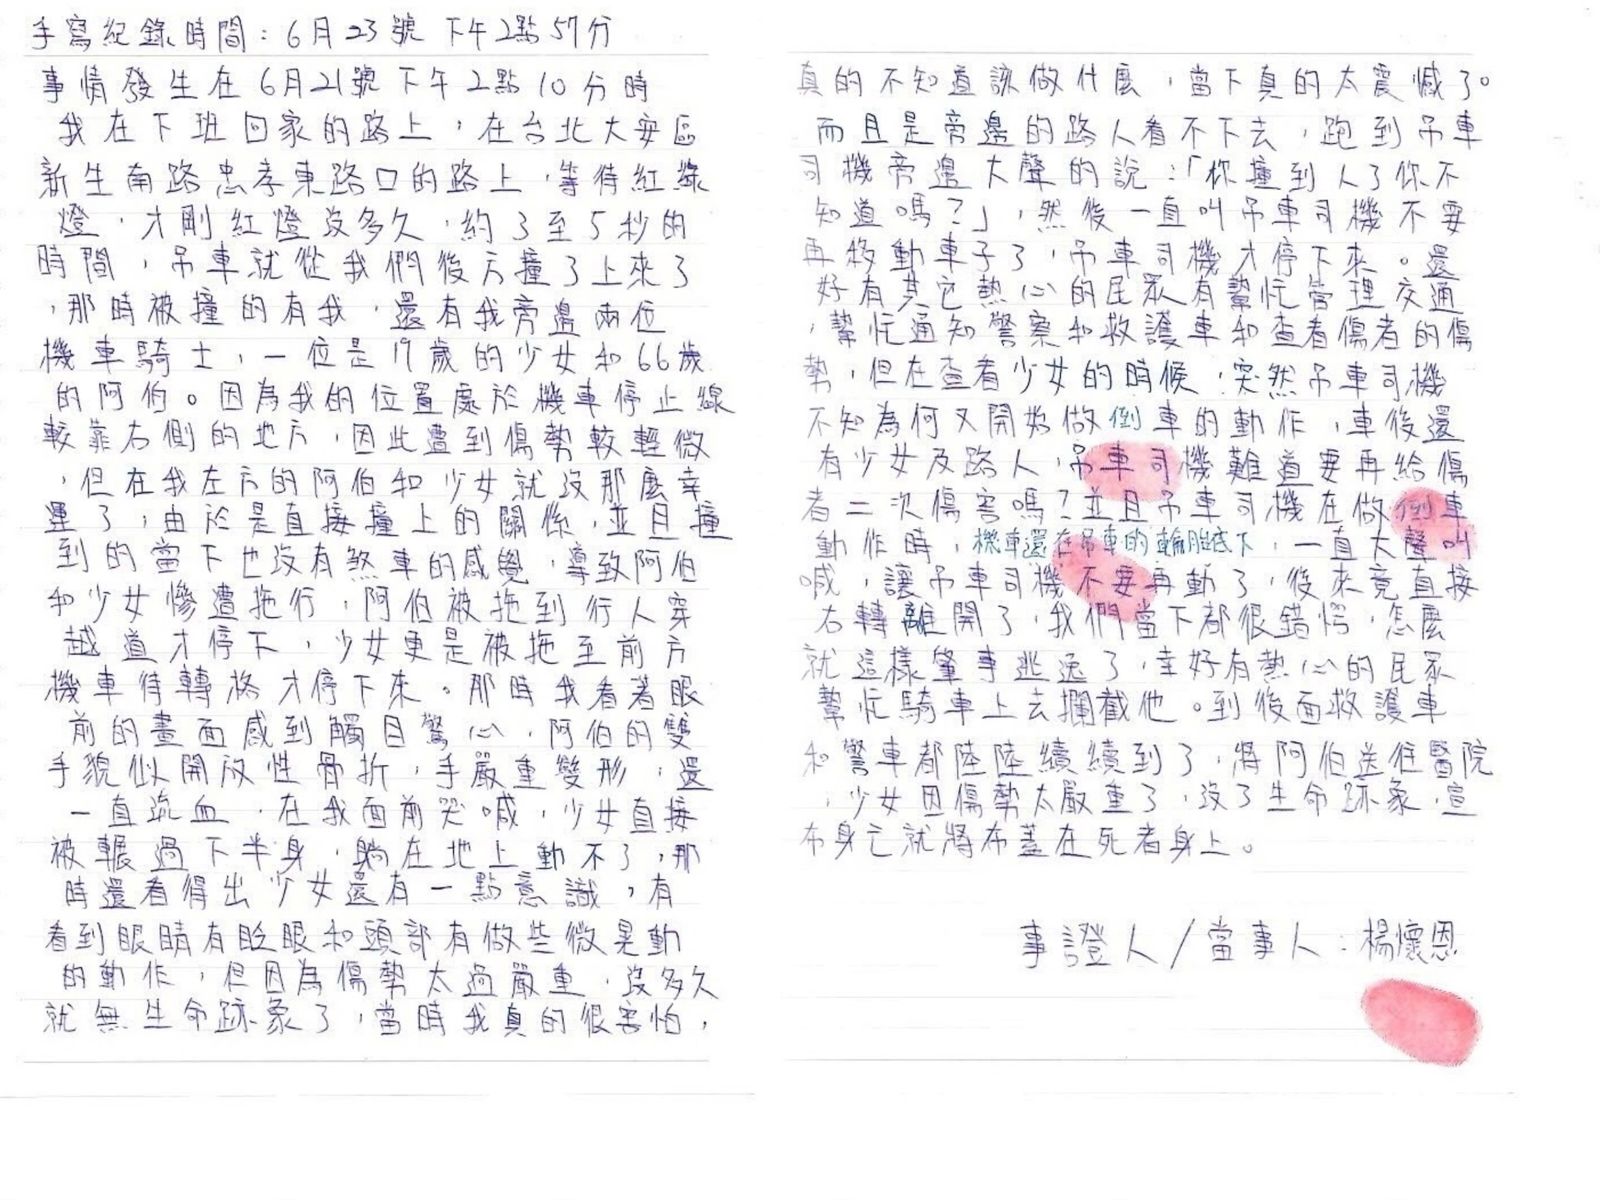 手寫紀錄時間：6月23號 下午2點57分
事情發生在6月21號下午2點10分時
我在下班回家的路上，在台北大安區
新生南路忠孝東路口的路上，等待紅綠
燈，才剛紅燈沒多久，約3至5秒的
時間，吊車就從我們後方撞了上來了
，那時被撞的有我，還有我旁邊兩位
機車騎士，一位是17歲的少女和66歲
的阿伯。因為我的位置處於機車停止線
較靠右側的地方，因此遭到傷勢較輕微
，但在我左方的阿伯和少女就沒那麼幸
運了，由於是直接撞上的關係，並且撞
到的當下也沒有煞車的感覺，導致阿伯
和少女慘遭拖行，阿伯被拖到行人穿
越道才停下，少女更是被拖至前方
機車待轉格才停下來。那時我看著眼
前的畫面感到觸目驚心，阿伯的雙
手貌似開放性骨折，手嚴重變形，還
一直流血，在我面前哭喊，少女直接
被輾過下半身，躺在地上動不了，那
時還看得出少女還有一點意識，有
看到眼睛有眨眼和頭部有做些微晃動
的動作，但因為傷勢太過嚴重，沒多久
就無生命跡象了，當時我真的很害怕，
真的不知道該做什麼，當下真的太震憾了。
而且是旁邊的路人看不下去，跑到吊車
司機旁邊大聲的說：「你撞到人了你不
知道嗎？」，然後一直叫吊車司機不要
再移動車子了，吊車司機才停下來。還
好有其它熱心的民眾有幫忙管理交通
，幫忙通知警察和救護車和查看傷者的傷
勢，但在查看少女的時候，突然吊車司機
不知為何又開始做倒車的動作，車後還
有少女及路人，吊車司機難道要再給傷
者二次傷害嗎？並且吊車司機在做倒車
動作時，機車還在吊車的輪胎底下，一直大聲叫
喊，讓吊車司機不要再動了，後來竟直接
右轉離開了，我們當下都很錯愕，怎麼
就這樣肇事逃逸了，幸好有熱心的民眾
幫忙騎車上去攔截他。到後面救護車
和警車都陸陸續續到了，將阿伯送往醫院
，少女因傷勢太嚴重了，沒了生命跡象，宣
布身亡就將布蓋在死者身上。
事證人/當事人：楊懷恩